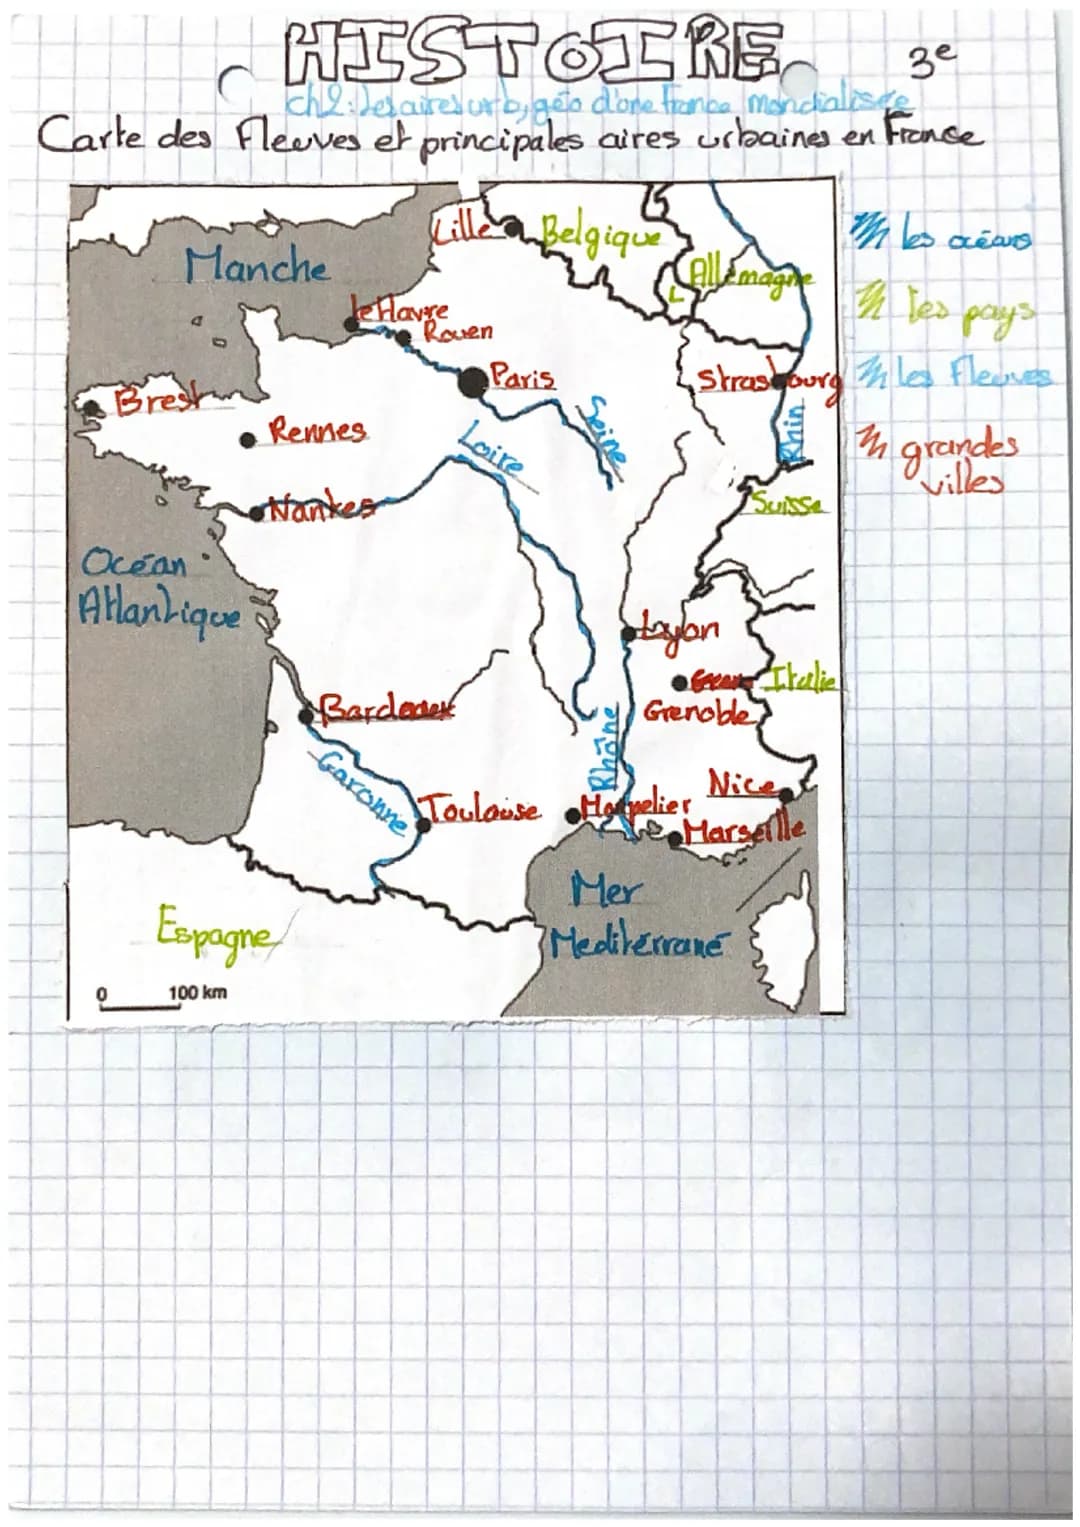 HISTOIRE
3e
ch2: les aires urb, géo d'une France mondialisée
Carte des Fleuves et principales aires urbaines en France
Lille
Belgique
les océans
Manche
Allemagne
L
le Havre
les pays
Rouen
Paris
Strasbourg
les Fleuves
Brest
Seine
Rhin
Rennes
Loire
grandes
villes
Nantes
Suisse
Océan
Atlantique
Lyon
Italie
Grenoble
Bordeaux
Rhône
Garonne
Nice
Toulouse
Montpelier
Marseille
Mer
Mediterrané
Espagne
0 100 km